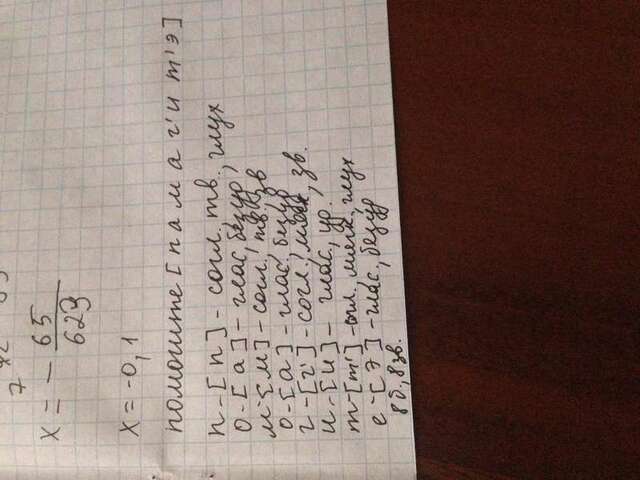 x = - 65/623
x = -0,1
помогите [памаг'ит'э]
п-[п]- согл, тв, глух
о-[а]-глас, безур,
м-[м]-согл, тв, зв
о-[а]-глас, безур
г-[г']-согл, мягк, зв.
и-[и]- глас, ур.
т-[т']-согл, мягк, глух
е-[э]-глас, безур
8б, 8зв.